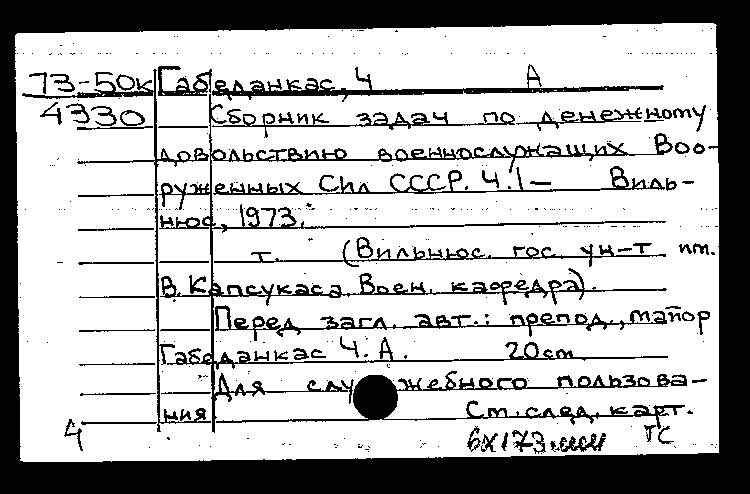 73-50к Габеданкас, Ч А
4330 Сборник задач по денежному
довольствию военнослужащих Воо-
руженных Сил СССР. Ч.1— Виль-
нюс, 1973.
т. (Вильнюс. гос. ун-т им.
В. Капсукаса. Воен. кафедра).
Перед загл. авт.: препод., майор
Габеданкас Ч. А. 20см.
Для служебного пользова-
ния См. след. карт.
4 6X173 тс